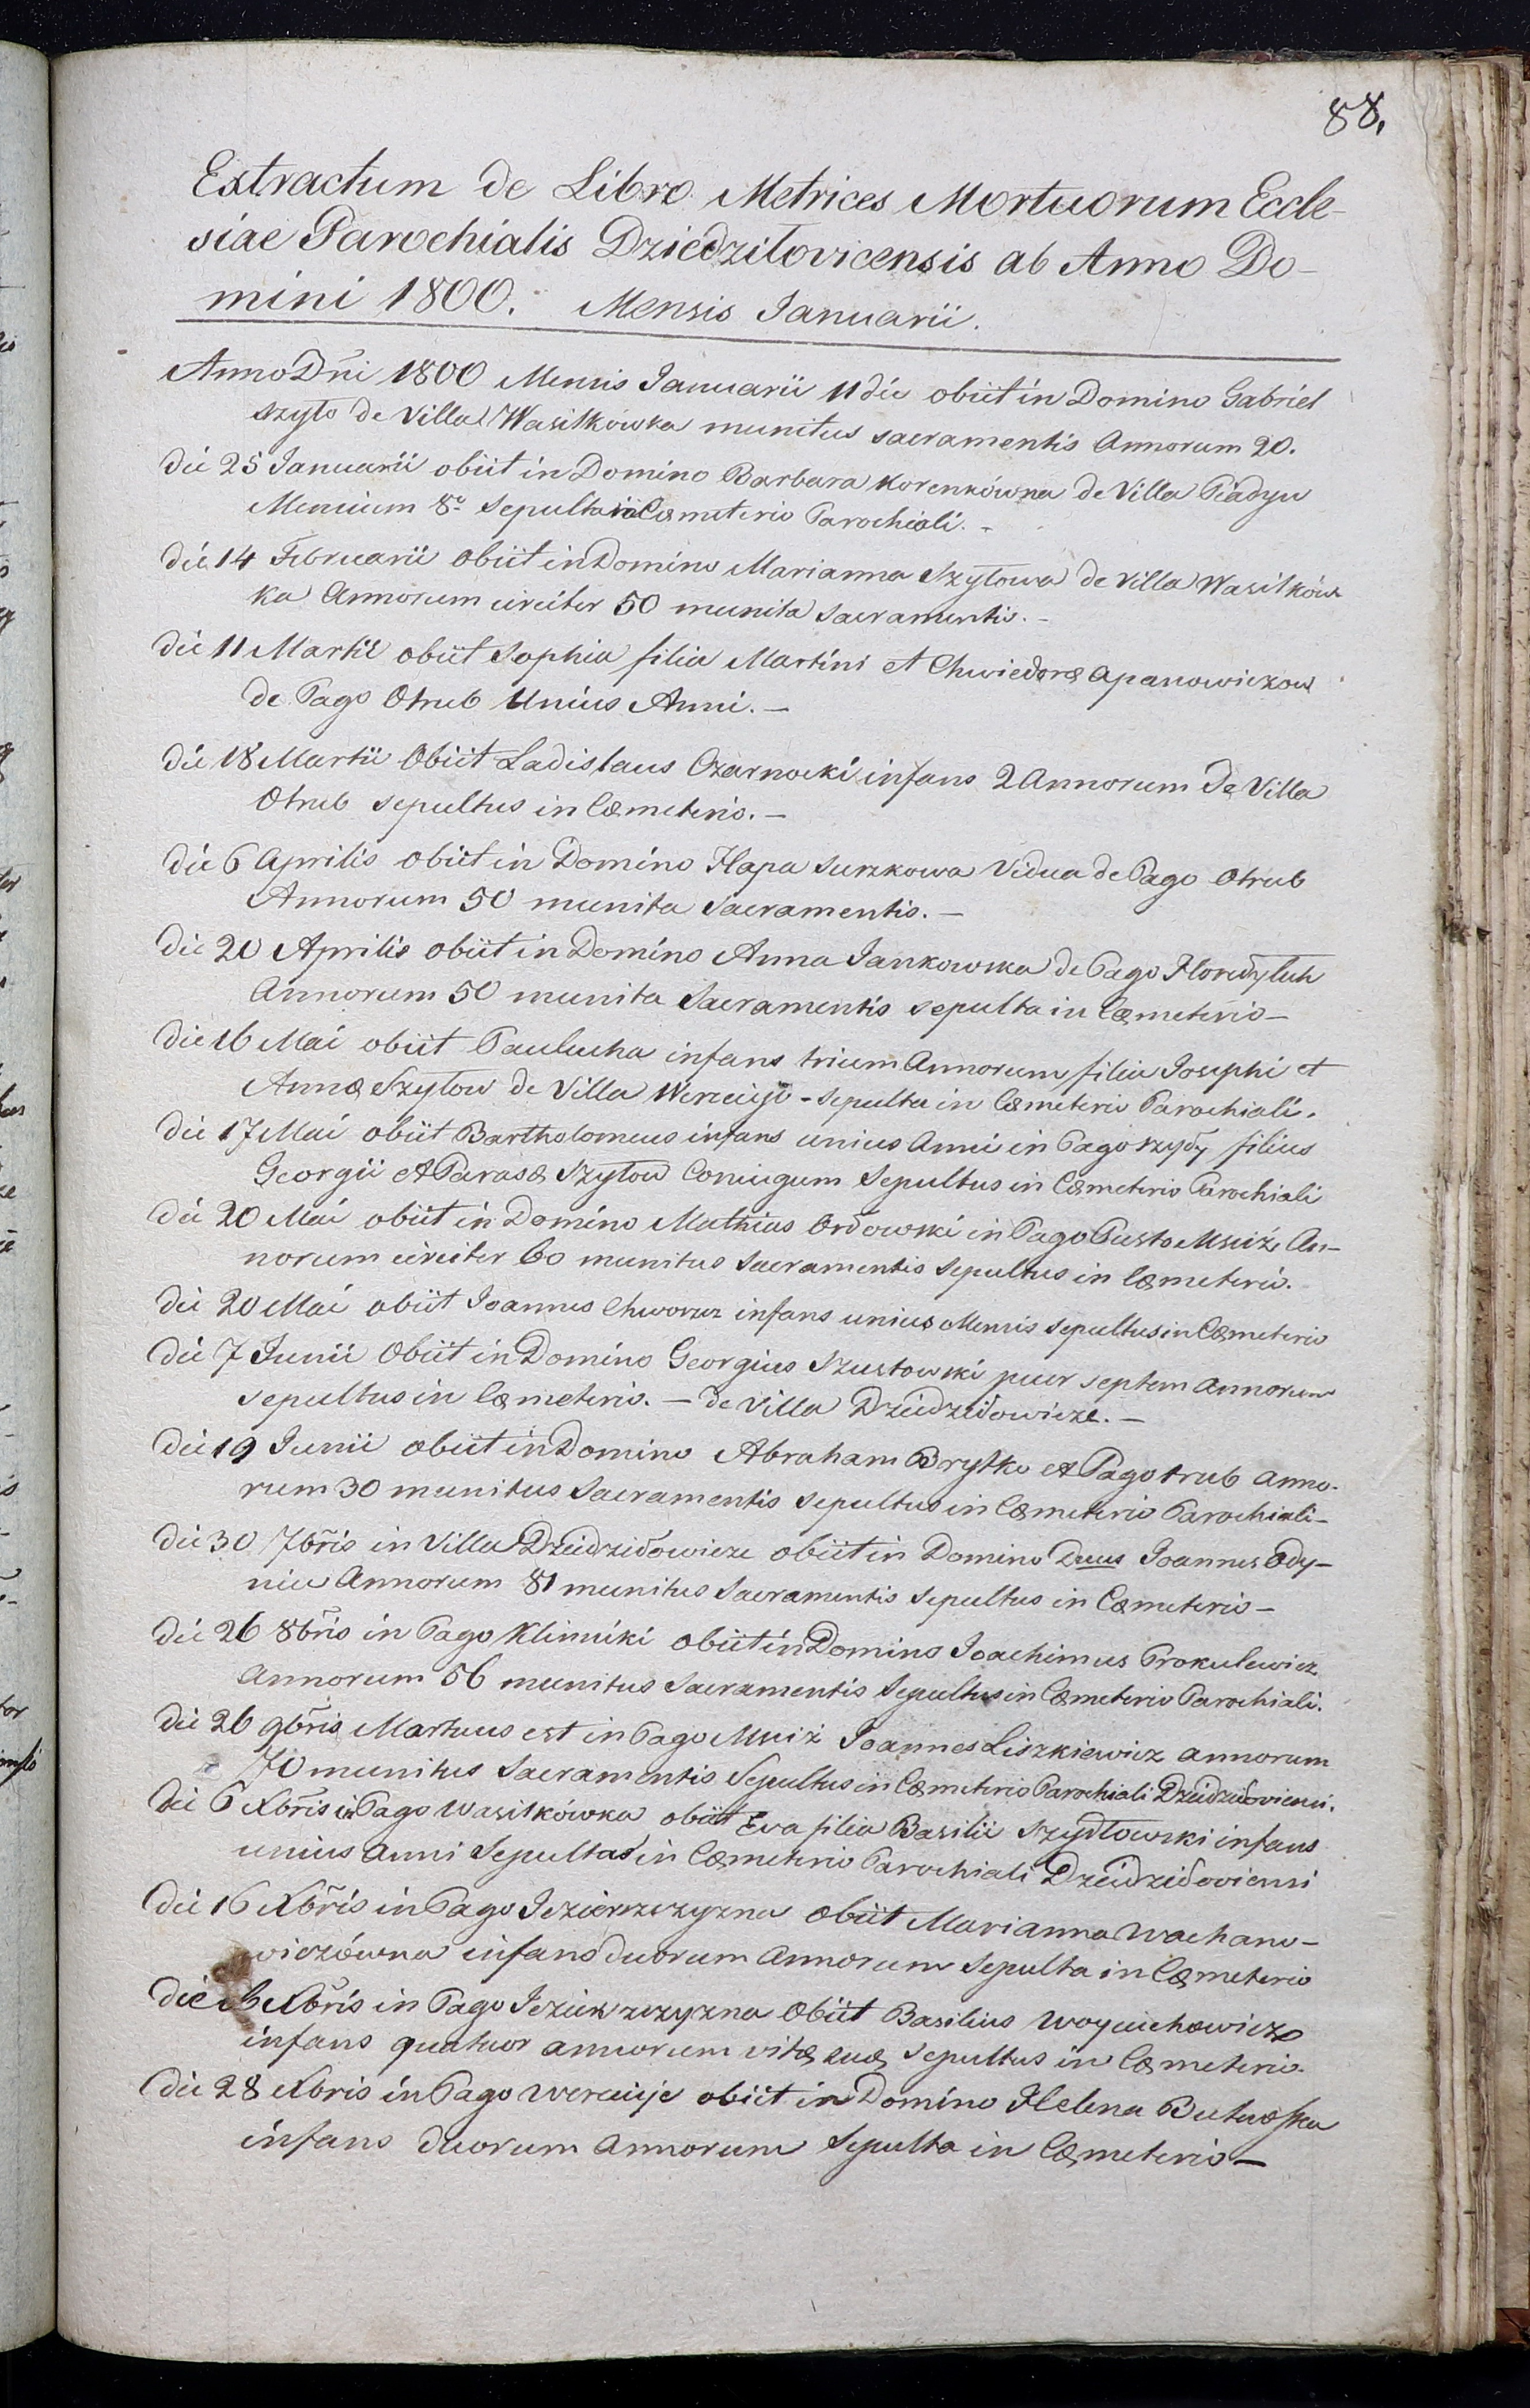 88.
Extractum de Libro Metrices Mortuorum Eccle-
siae Parochialis Dziedziłovicensis ab Anno Do-
mini 1800. Mensis Januarii.
Anno Dñi 1800 Mensis Januarii 11 die obiit in Domino Gabriel
Szyło de Villa Wasilkówka munitus sacramentis Annorum 20.
Die 25 Januarii obiit in Domino Barbara Korenkówna de Villa
Mensium 8o Sepulta in Cæmeterio Parochiali. -
Die 14 Februarii obiit in Domino Marianna Szyłowa de Villa Wasilków
ka Annorum circiter 50 munita Sacramentis. -
Die 11 Martii obiit Sophia filia Martini et Chwiedoræ Apanowiczow
de Pago Otrub Unius Anni. -
Die 18 Martii Obiit Ladislaus Czarnocki infans 2 Annorum De Villa
Otrub sepultus in Cæmeterio. -
Die 6 Aprilis obiit in Domino Hapa Surzkowa Vidua de Pago Otrub
Annorum 50 munita Sacramentis. -
Die 20 Aprilis obiit in Domino Anna Jankowska de Pago
Annorum 50 munita Sacramentis sepulta in Cæmeterio -
Die 16 Mai obiit Paulucha infans trium Annorum filia Josephi et
Annæ Szyłow de Villa Wereicje - Sepulta in Cæmeterio Parochiali.
Die 17 Mai obiit Bartholomeus infans unius Anni in Pago filius
Georgii et Parasæ Szyłow Coniugum Sepultus in Cæmeterio Parochiali
Die 20 Mai obiit in Domino Mathias Ordowski in Pago Pusto Mściż An-
norum circiter 60 munitus Sacramentis Sepultus in Cæmeterio.
Die 20 Mai obiit Joannes infans unius Mensis sepultus in Cæmeterio
Die 7 Junii Obiit in Domino Georgius Szustowski puer septem Annorum
sepultus in Cæmeterio. - de Villa Dziedziłowicze. -
Die 19 Junii obiit in Domino Abraham Bryłko et Pago trub Anno-
rum 30 munitus Sacramentis Sepultus in Cæmeterio Parochiali -
Die 30 7bris in Villa Dziedziłowicze obiit in Domino Joannes Ody-
niec Annorum 81 munitus Sacramentis Sepultus in Cæmeterio -
Die 26 8bris in Pago Klimuki obiit in Domino Joachimus Prokulewicz
Annorum 56 munitus Sacramentis Sepultus in Cæmeterio Parochiali.
Die 26 9bris Mortuus est in Pago Mściż Joannes Liszkiewicz annorum
70 munitus Sacramentis Sepultus in Cæmeterio Parochiali Dziedziłoviensi.
Die 6 Xbris in Pago Wasilkówka obiit Eva filia Basilii Szydłowski infans
unius Anni Sepulta in Cæmeterio Parochiali Dziedziłoviensi
Die 16 Xbris in Pago obiit Marianna Wachano-
wiczówna infans duorum Annorum Sepulta in Cæmeterio
Die Xbris in Pago Obiit Basilius Woyciechowicz
infans quatuor annorum vitæ suæ sepultus in Cæmeterio.
Die 28 Xbris in Pago Wereicje obiit in Domino Helena
infans duorum Annorum Sepulta in Cæmeterio -